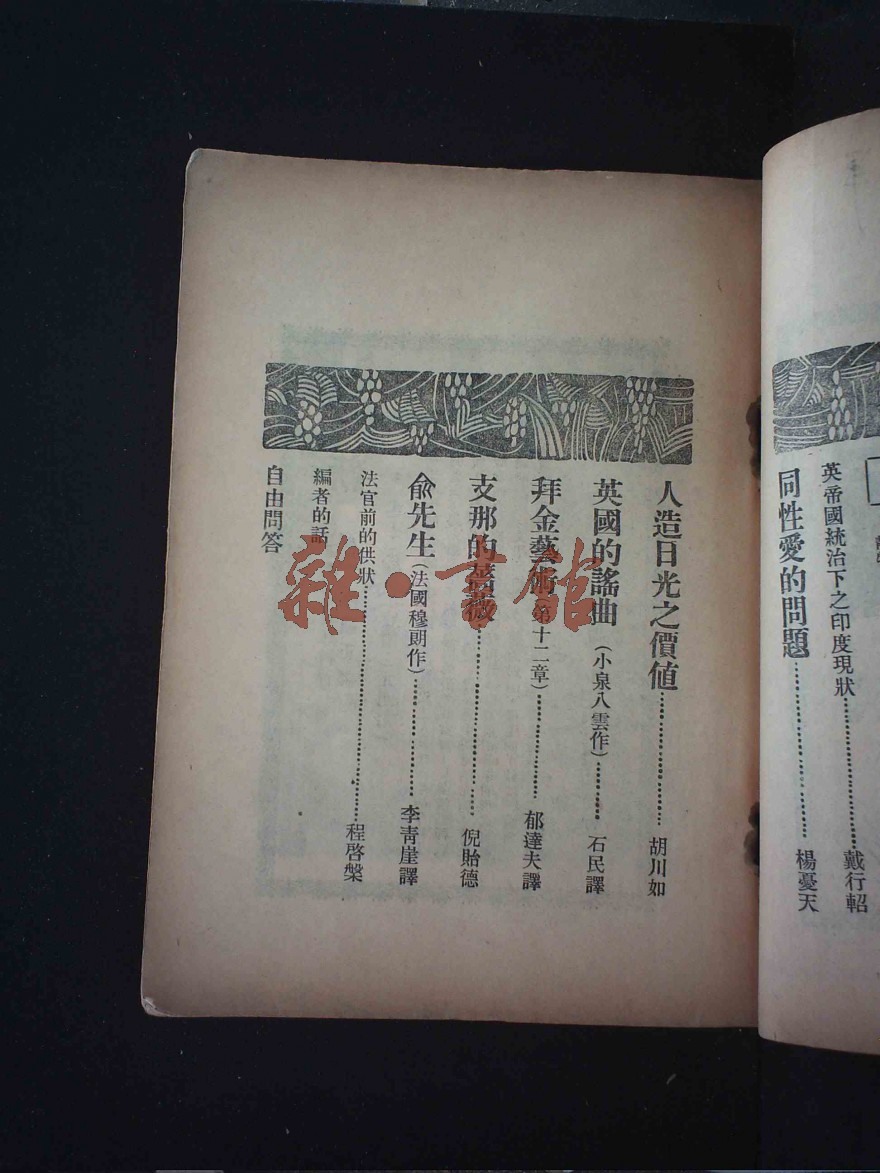 英帝國統治下之印度現狀……戴行軺
同性愛的問題……楊憂天
人造日光之價值……胡川如
英國的謠曲(小泉八雲作)……石民譯
拜金藝術(第十二章)……郁達夫譯
支那的薔薇……倪貽德
俞先生(法國穆朗作)……李靑崖譯
法官前的供狀……程啓槃
編者的話
自由問答
雜·書館